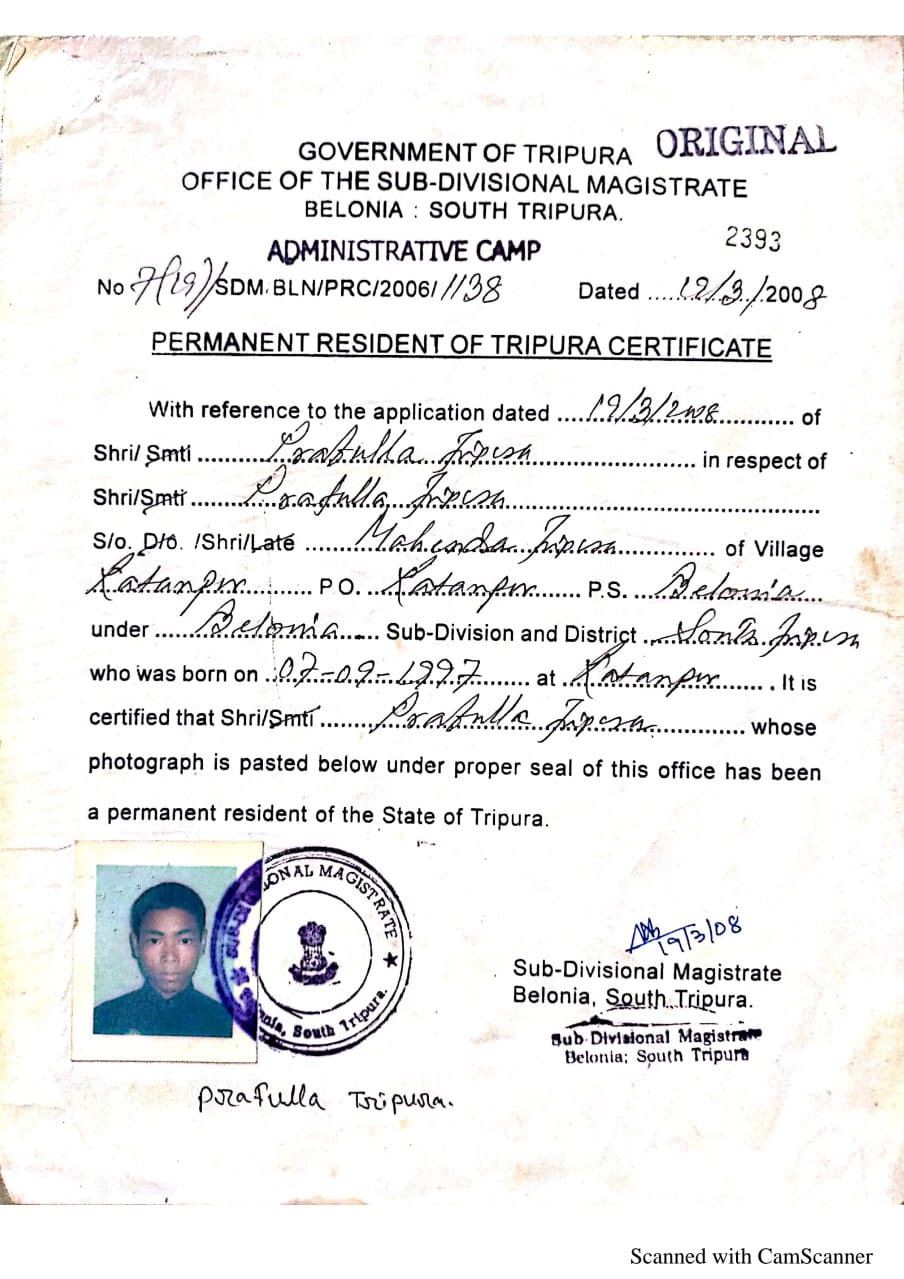 GOVERNMENT OF TRIPURA ORIGINAL
OFFICE OF THE SUB-DIVISIONAL MAGISTRATE
BELONIA : SOUTH TRIPURA.
2393
ADMINISTRATIVE CAMP
No 7(19)/SDM.BLN/PRC/2006/1138 Dated .....19/3./2008
PERMANENT RESIDENT OF TRIPURA CERTIFICATE
With reference to the application dated ....19/3/2008............ of
Shri/ Smti ..........Prafulla Tripura........................... in respect of
Shri/Smti .........Prafulla Tripura..................................................
S/o. D/o. /Shri/Late ........Mahendra Tripura............... of Village
Ratanpur........... P.O. ...Ratanpur....... P.S. ...Belonia...
under .......Belonia..... Sub-Division and District ...South Tripura
who was born on ..07-09-1997........ at ...Ratanpur....... . It is
certified that Shri/Smti .........Prafulla Tripura............... whose
photograph is pasted below under proper seal of this office has been
a permanent resident of the State of Tripura.
IONAL MAGISTRATE ★
nia, South Tripura.
19/3/08
Sub-Divisional Magistrate
Belonia, South Tripura.
Sub-Divisional Magistrate
Belonia; South Tripura
Prafulla Tripura.
Scanned with CamScanner